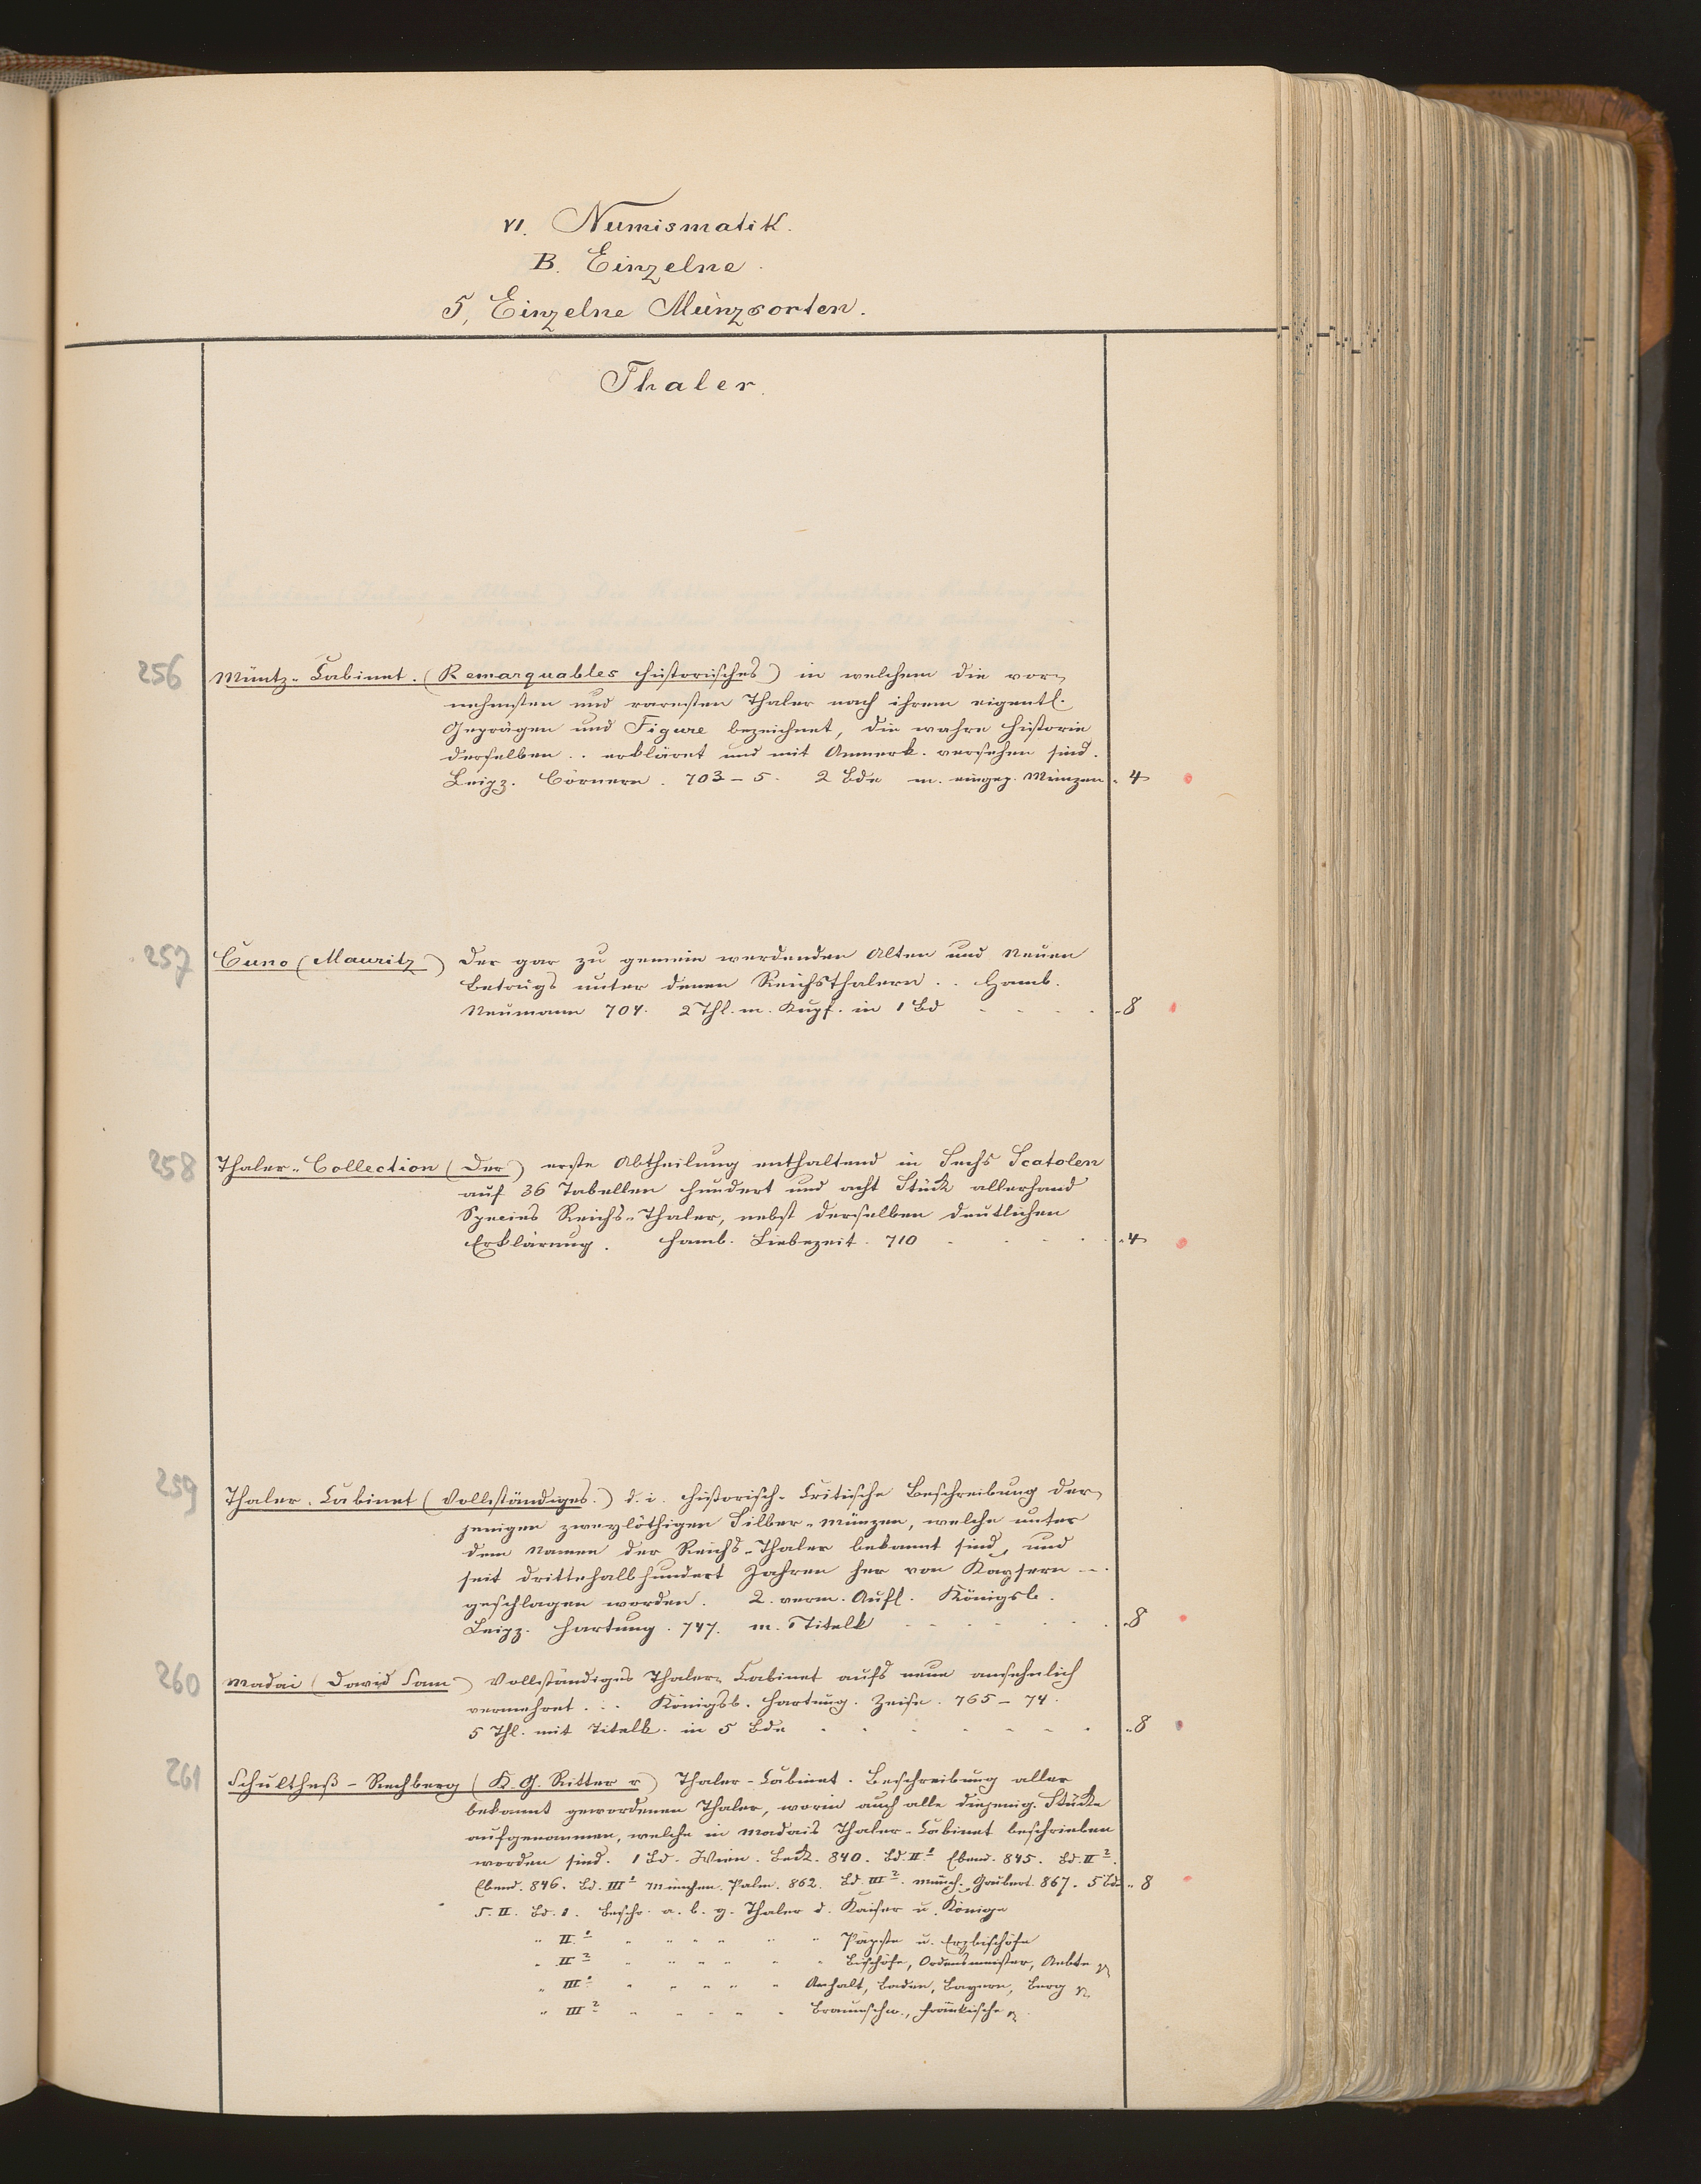 VI. Numismatik.
B. Einzelne.
5, Einzelne Münzsorten.
Thaler.
256 Müntz-Cabinet. (Remarquables historisches) in welchem die vor-
nehmsten und raresten Thaler nach ihrem eigentl.
Geprägen und Figure bezeichnet, die wahre Historie
derselben .. erkläret und mit Anmerk. versehen sind.
Leipz. Cörnern. 703-5. 2 Bde m. eingep. Münzen. 4
257 Cuno (Mauritz) Der gar zu gemein werdenden Alten und Neuen
Betrugs unter denen Reichsthalern .. Hamb.
Neumann 704. 2 Thl. m. Kupf. in 1 Bd . . . . 8
258 Thaler-Collection (Der) erste Abtheilung enthaltend in Sechs Scatolen
auf 36 Tabellen hundert und acht Stück allerhand
Species Reichs-Thaler, nebst derselben deutlichen
Erklärung. Hamb. Liebezeit. 710 . . . . 4
259 Thaler-Cabinet (Vollständiges.) d. i. historisch-Critische Beschreibung der-
jenigen zweylöthigen Silber-Münzen, welche unter
dem Namen der Reichs-Thaler bekannt sind, und
seit drittehalbhundert Jahren her von Kaysern ...
geschlagen worden. 2. verm. Aufl. Königsb.
Leipz. Hartung. 747. m. Titelk . . . . . 8
260 Madai (David Sam) Vollständiges Thaler-Cabinet aufs neue ansehnlich
vermehret .. Königsb. Hartung. Zeise. 765-74.
5 Thl. mit Titelk. in 5 Bde . . . . . . . 8
261 Schultheß-Rechberg (K. G. Ritter v) Thaler-Cabinet. Beschreibung aller
bekannt gewordenen Thaler, worin auch alle diejenig. Stücke
aufgenommen, welche in Madais Thaler-Cabinet beschrieben
worden sind. 1 Bd. Wien. Beck. 840. Bd. II.1 Ebend. 845. Bd. II2.
Ebend. 846. Bd. III1 München. Palm. 862. Bd. III2. Münch. Gaubert. 867. 5 Bde .. 8
S. II. Bd. 1. Beschr. a. b. g. Thaler d. Kaiser u. Könige
" II.1 " " " " " " Päpste u. Erzbischöfe
" II2 " " " " " " Bischöfe, Ordensmeister, Aebte
" III1 " " " " " Anhalt, Baden, Bayern, Berg
" III2 " " " " " Braunschw., Fränkische